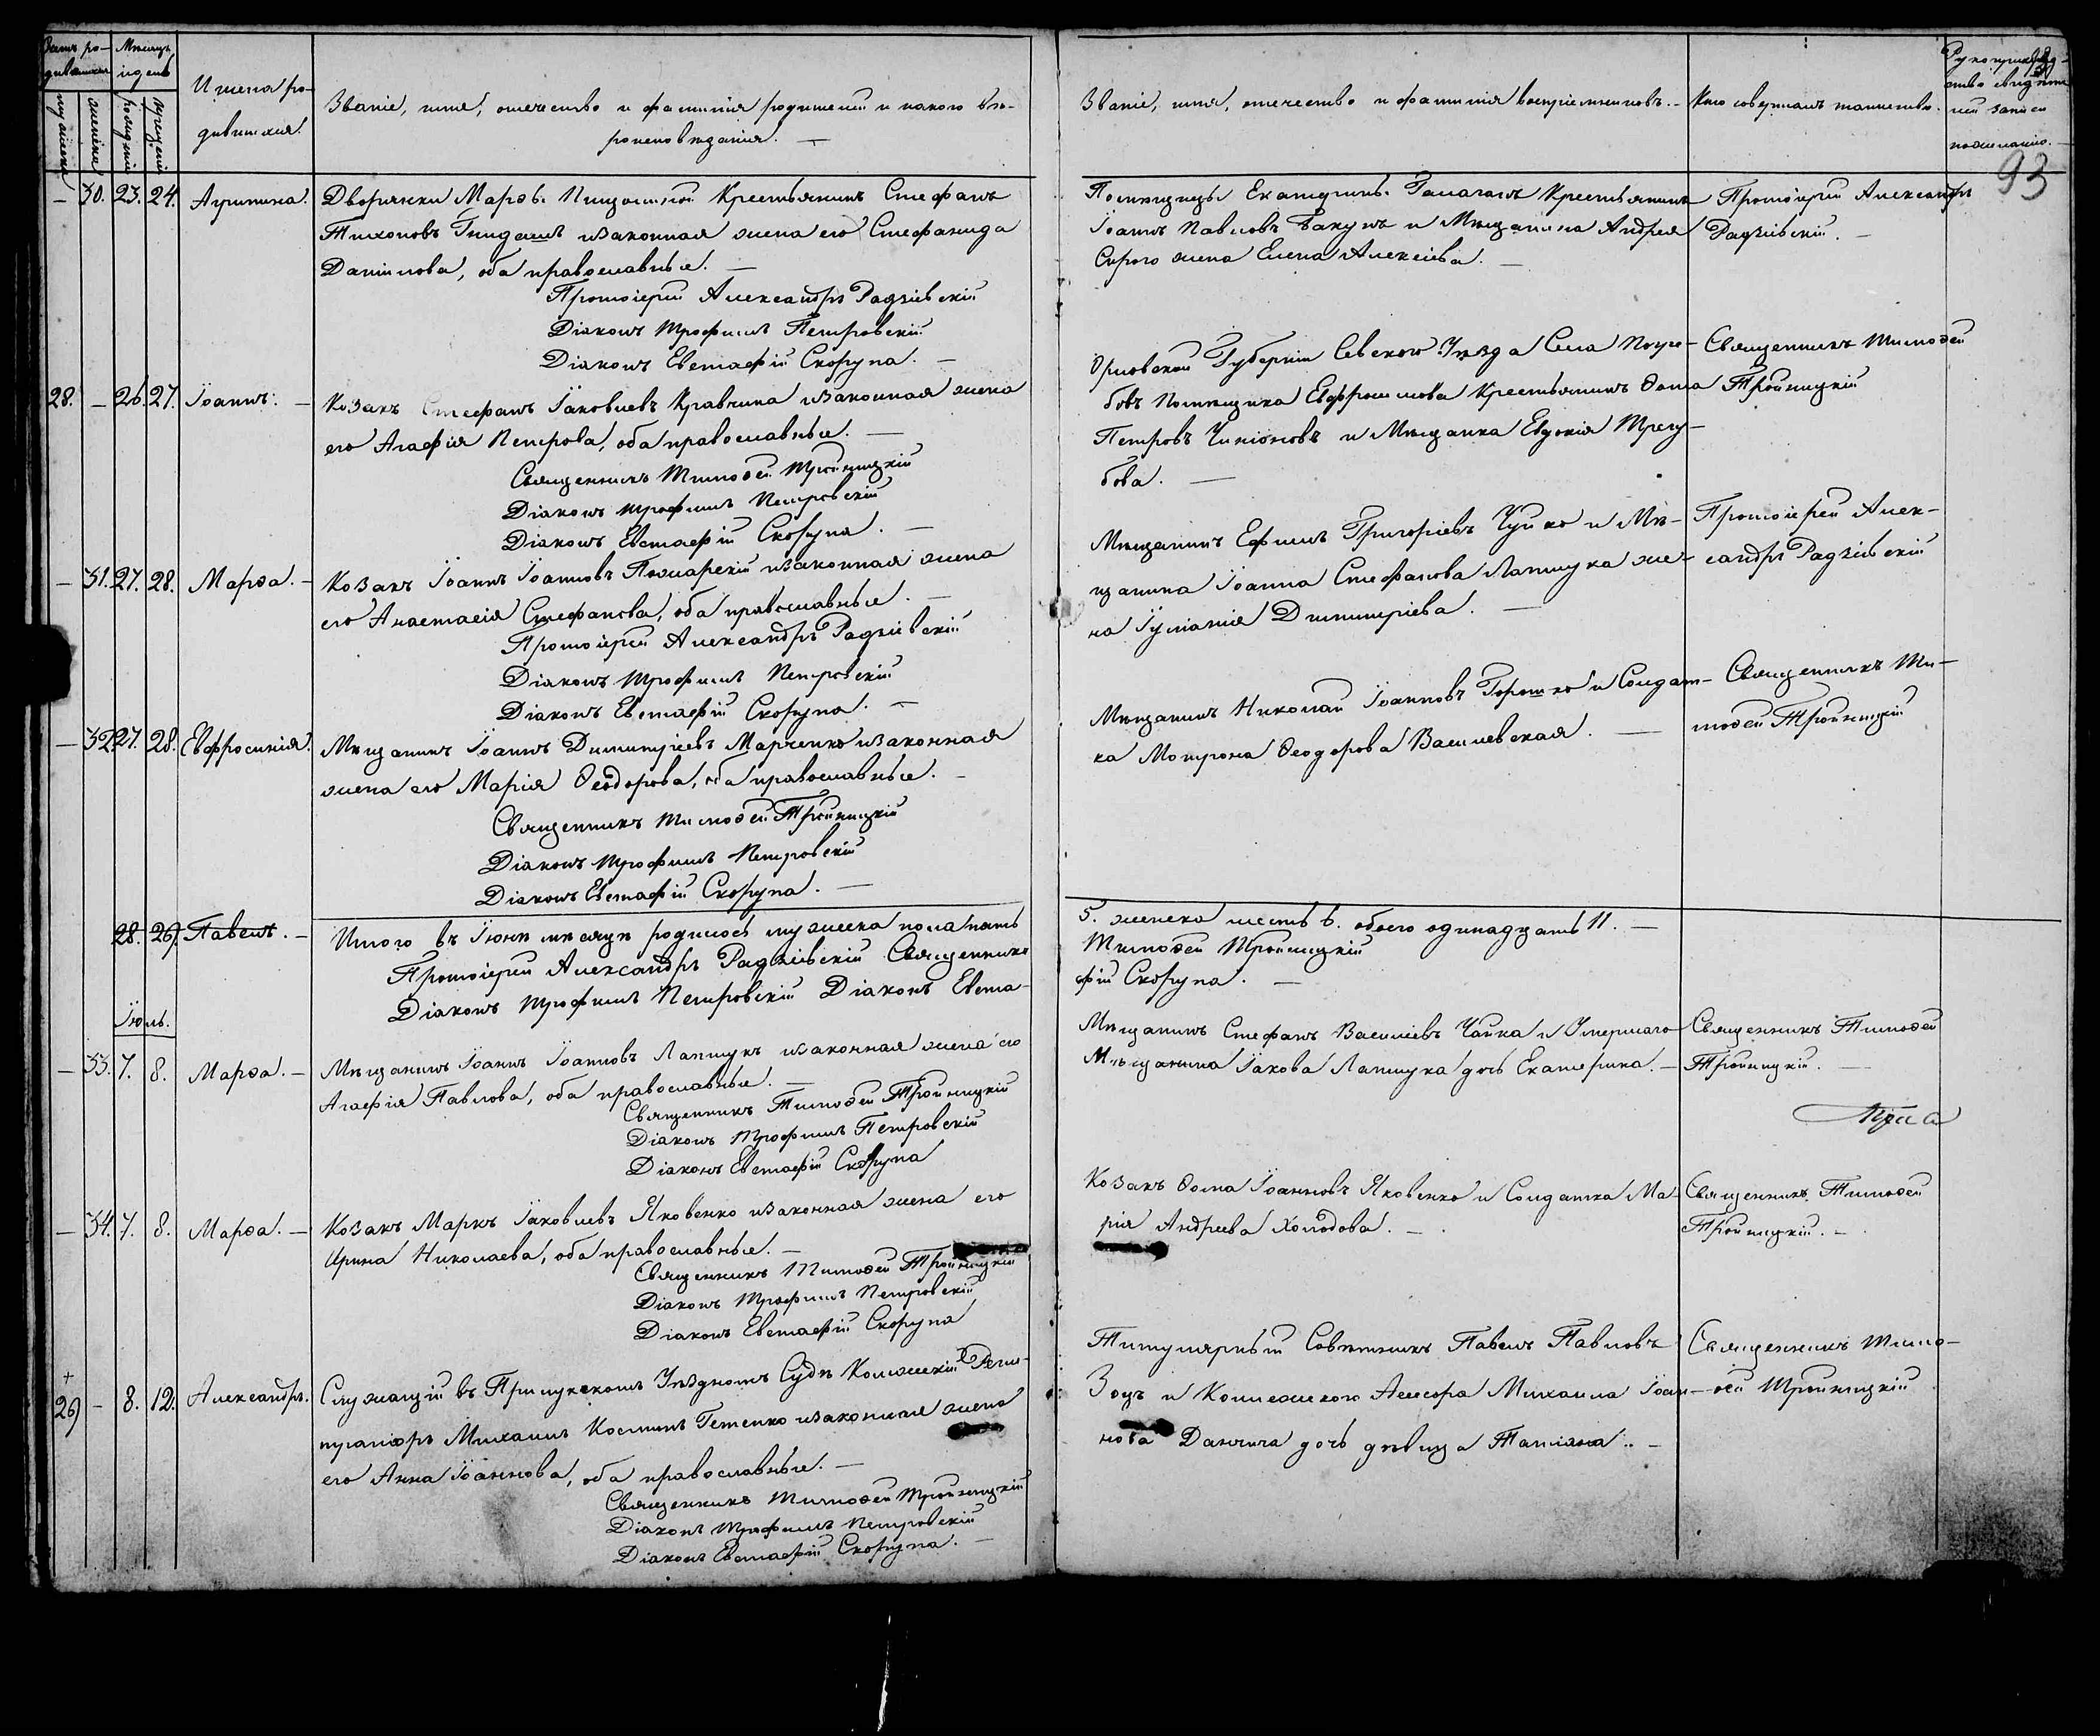 Счетъ ро-
дившихся
Мѣсяцъ
и день
мужеска
женска
рожденія
крещенія
Имена ро-
дившихся.
Званіе, имя, отечество и фамилія родителей и какого вѣ-
роисповѣданія. —
Званіе, имя, отечество и фамилія воспріемниковъ. —
Кто совершалъ таинство.
Рукоприклад-
ство свидѣте-
лей записи
по желанію. —
93
— 30. 23. 24. Агрипина.
Дворянки Марѳы Крестьянинъ Стефанъ
Тихоновъ и законная жена его Стефанида
Даніилова, оба православные. —
Протоіерей Александръ Радзіевскій
Діаконъ Трофимъ Петровскій
Діаконъ Евстафій Скорупа. —
Помѣщицы Екатерины Галаганъ Крестьянинъ
Іоаннъ Павловъ Бакунъ и Мѣщанина Андрея
Сирого жена Елена Алексіева. —
Протоіерей Александръ
Радзіевскій. —
28. — 26. 27. Іоаннъ. —
Козакъ Стефанъ Іаковлевъ Кравчина и законная жена
его Агафія Петрова, оба православные. —
Священникъ Тимоѳей Тройницкій
Діаконъ Трофимъ Петровскій
Діаконъ Евстафій Скорупа. —
Орловской Губерніи Севского Уѣзда Села Погре-
бовъ Помѣщика Евфросимова Крестьянинъ Ѳома
Петровъ Чикіоновъ и Мѣщанка Евдокія Трегу-
бова. —
Священникъ Тимоѳей
Тройницкій
— 31. 27. 28. Марѳа. —
Козакъ Іоаннъ Іоанновъ Пожарскій и законная жена
его Анастасія Стефанова, оба православные. —
Протоіерей Александръ Радзіевскій
Діаконъ Трофимъ Петровскій
Діаконъ Евстафій Скорупа. —
Мѣщанинъ Ефимъ Григоріевъ Чуйко и Мѣ-
щанина Іоанна Стефанова Лапшука же-
на Іуліанія Димитріева. —
Протоіерей Алек-
сандръ Радзіевскій
— 32. 27. 28. Евфросинія.
Мѣщанинъ Іоаннъ Димитріевъ Марченко и законная
жена его Марія Ѳеодорова, оба православные. —
Священникъ Тимоѳей Тройницкій
Діаконъ Трофимъ Петровскій
Діаконъ Евстафій Скорупа. —
Мѣщанинъ Николай Іоанновъ Горошко и Солдат-
ка Мотрона Ѳеодорова Василевская. —
Священникъ Ти-
моѳей Тройницкій
28. 29. Павелъ. —
Итого въ Іюнѣ мѣсяцѣ родилось мужеска пола пять
5. женска шесть 6. обоего одинадцать 11. —
Протоіерей Александръ Радзіевскій Священникъ
Тимоѳей Тройницкій
Діаконъ Трофимъ Петровскій Діаконъ Евста-
фій Скорупа. —
Іюль.
— 33. 7. 8. Марѳа. —
Мѣщанинъ Іоаннъ Іоанновъ Лапшукъ и законная жена его
Агафія Павлова, оба православные. —
Священникъ Тимоѳей Тройницкій
Діаконъ Трофимъ Петровскій
Діаконъ Евстафій Скорупа
Мѣщанинъ Стефанъ Василіевъ Чайка и Умершаго
Мѣщанина Іакова Лапшука дочь Екатерина. —
Священникъ Тимоѳей
Тройницкій. —
— 34. 7. 8. Марѳа. —
Козакъ Маркъ Іаковлевъ Яковенко и законная жена его
Ирина Николаева, оба православные. —
Священникъ Тимоѳей Тройницкій
Діаконъ Трофимъ Петровскій
Діаконъ Евстафій Скорупа
Козакъ Ѳома Іоанновъ Яковенко и Солдатка Ма-
рія Андреева Холодова. —
Священникъ Тимоѳей
Тройницкій. —
+
29 — 8. 12. Александръ.
Служащій въ Прилукскомъ Уѣздномъ Судѣ Коллежскій Реги-
страторъ Михаилъ Косминъ Гетенко и законная жена
его Анна Іоаннова, оба православные. —
Священникъ Тимоѳей Тройницкій
Діаконъ Трофимъ Петровскій
Діаконъ Евстафій Скорупа. —
Титулярный Совѣтникъ Павелъ Павловъ
Зоцъ и Коллежского Асессора Михаила Іоан-
нова Данчича дочь дѣвица Татіана. —
Священникъ Тимо-
ѳей Тройницкій